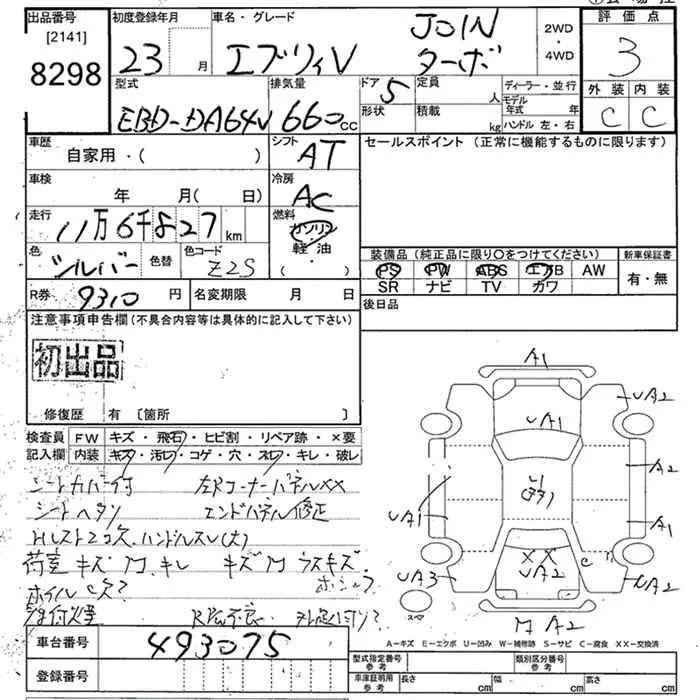 出品番号
[2141]
8298
初度登録年月
23 月
車名・グレード
エブリィV
JOIN
ターボ
2WD
・
4WD
評価点
3
外装 内装
C C
型式
EBD-DA64V
排気量
660 cc
ドア 5
形状
定員 人
積載 kg
ディーラー・並行
モデル年式 年
ハンドル 左・右
車歴
自家用・( )
シフト AT
セールスポイント (正常に機能するものに限ります)
車検
年 月( 日)
冷房 AC
走行
11万6千827 km
燃料
ガソリン
軽・油
( ・ )
色 シルバー
色替
色コード Z2S
装備品 (純正品に限り○をつけてください)
新車保証書
PS PW ABS エアB AW
SR ナビ TV カワ
有・無
R券 9310 円
名変期限 月 日
後日品
注意事項申告欄 (不具合内容等は具体的に記入して下さい)
初出品
修復歴 有 〔箇所 〕
検査員 FW キズ・飛石・ヒビ割・リペア跡・×要
記入欄 内装 キズ・汚レ・コゲ・穴・スレ・キレ・破レ
シートカバー付 左Rコーナーパネル××
シートヘタリ エンドパネル修正
Hレスト2コ欠 ハンドルスレ(大)
荷室 キズ 凹 キレ キズ 凹 ラスキズ
ホイルCケ?
R
A1
UA1
UA2
A2
A1
UA1
UA3
××
UA2
C
UA2
スペア
A2
A-キズ E-エクボ U-凹み W-補修跡 S-サビ C-腐食 ××-交換済
車台番号 493075
登録番号
型式指定番号
参考
類別区分番号
参考
車庫証明用
参考
長さ cm 幅 cm 高さ cm